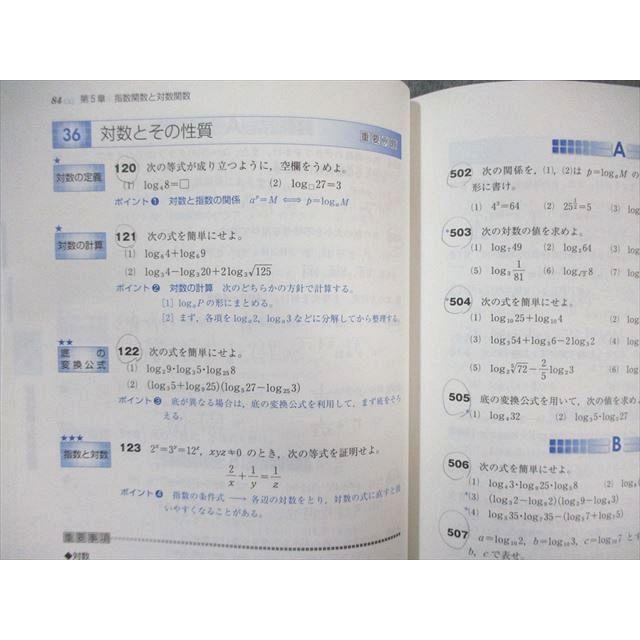 84 第5章 指数関数と対数関数
36 対数とその性質
重要例題
★
対数の定義
120 次の等式が成り立つように，空欄をうめよ。
(1) log₄8=□ (2) log□27=3
ポイント❶ 対数と指数の関係 aᵖ=M ⟺ p=logₐM
★
対数の計算
121 次の式を簡単にせよ。
(1) log₆4+log₆9
(2) log₃4−log₃20+2log₃√125
ポイント❷ 対数の計算 次のどちらかの方針で計算する。
[1] logₐPの形にまとめる。
[2] まず，各項をlogₐ2，logₐ3などに分解してから整理する。
★★
底の
変換公式
122 次の式を簡単にせよ。
(1) log₂9・log₃5・log₂₅8
(2) (log₃5+log₉25)(log₅27−log₂₅3)
ポイント❸ 底が異なる場合は，底の変換公式を利用して，まず底をそろ
える。
★★★
指数と対数
123 2ˣ=3ʸ=12ᶻ，xyz≠0 のとき，次の等式を証明せよ。
2/x+1/y=1/z
ポイント❹ 指数の条件式 ⟶ 各辺の対数をとり，対数の式に直すと扱
いやすくなることがある。
重要事項
◆対数
A
502 次の関係を，(1)，(2)は p=logₐM の
形に書け。
(1) 4³=64 (2) 25^(1/2)=5 (3)
*503 次の対数の値を求めよ。
(1) log₇49 (2) log₂64 (3)
(5) log₃ 1/81 (6) (7)
*504 次の式を簡単にせよ。
(1) log₁₀25+log₁₀4 (2)
(3) log₃54+log₃6−2log₃2
(5) −2/5 log₂3
505 底の変換公式を用いて，次の値を求め
(1) log₄32 (2) log₃5・log₅27
B
506 次の式を簡単にせよ。
(1) log₄3・log₉25・log₅8 (2)
*(3) (log₃2−log₉2)(log₂9−log₄3)
*(4) log₅35・log₇35−(log₅7+log₇5)
507 a=log₁₀2，b=log₁₀3，c=log₁₀7 と
b，c で表せ。